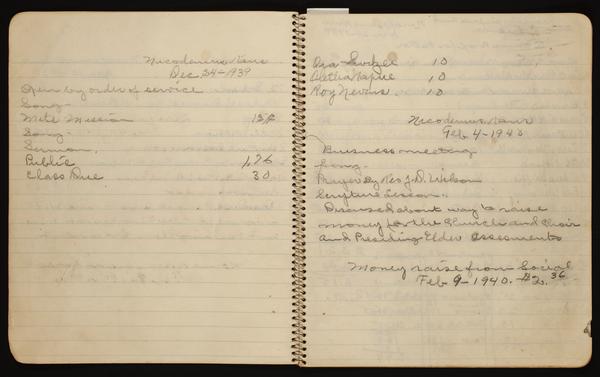 Nicodemus, Kans
Dec. 24-1939
Open by order of service
Song -
Mite Mission 13¢
Song -
Sermon.
Public 1,76
Class Due 30
Ora 10
10
Roy Nevins 10
Nicodemus, Kans
Feb 4-1940
Business meeting
Song.
Prayer By Rev J.D. Wilson
Scripture Lesson.
Discused about way to raise
money for the Church and Choir
and Presiding Elder Assesments
Money raise from Social
Feb 9-1940. $2.36